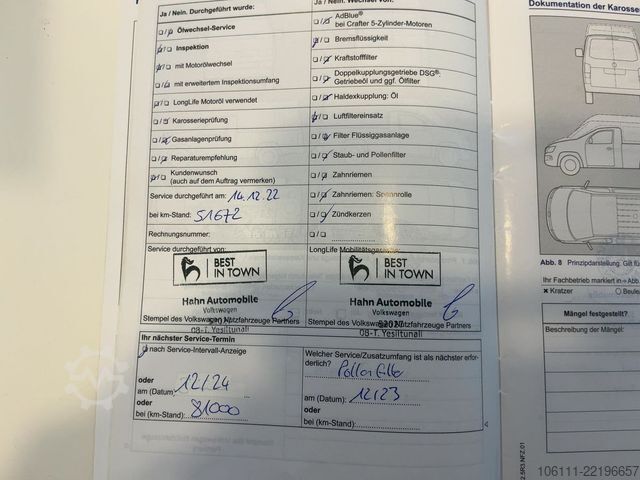 Ja / Nein. Durchgeführt wurde:
Ölwechsel-Service
Inspektion
mit Motorölwechsel
mit erweitertem Inspektionsumfang
LongLife Motoröl verwendet
Karosserieprüfung
Gasanlagenprüfung
Reparaturempfehlung
Kundenwunsch
(auch auf dem Auftrag vermerken)
Service durchgeführt am: 14.12.22
bei km-Stand: 51672
Rechnungsnummer:
Service durchgeführt von:
BEST
IN TOWN
Hahn Automobile
Volkswagen
Stempel des Volkswagen Nutzfahrzeuge Partners
08-T. Yesiltunali
Ja / Nein. Wechsel von:
AdBlue®
bei Crafter 5-Zylinder-Motoren
Bremsflüssigkeit
Kraftstofffilter
Doppelkupplungsgetriebe DSG®:
Getriebeöl und ggf. Ölfilter
Haldexkupplung: Öl
Luftfiltereinsatz
Filter Flüssiggasanlage
Staub- und Pollenfilter
Zahnriemen
Zahnriemen: Spannrolle
Zündkerzen
LongLife Mobilitätsgarantie:
BEST
IN TOWN
Hahn Automobile
Volkswagen
Stempel des Volkswagen Nutzfahrzeuge Partners
08-T. Yesiltunali
Ihr nächster Service-Termin
nach Service-Intervall-Anzeige
oder
am (Datum): 12/24
oder
bei (km-Stand): 81000
Welcher Service/Zusatzumfang ist als nächster erfor-
derlich?
Pollenfilter
am (Datum): 12/23
oder
bei (km-Stand):
Dokumentation der Karosser
Abb. 8 Prinzipdarstellung. Gilt fü
Ihr Fachbetrieb markiert in ⇒ Abb.
× Kratzer O Beule
Mängel festgestellt?
Beschreibung der Mängel:
2.5R3.NFZ.01
106111-22196657